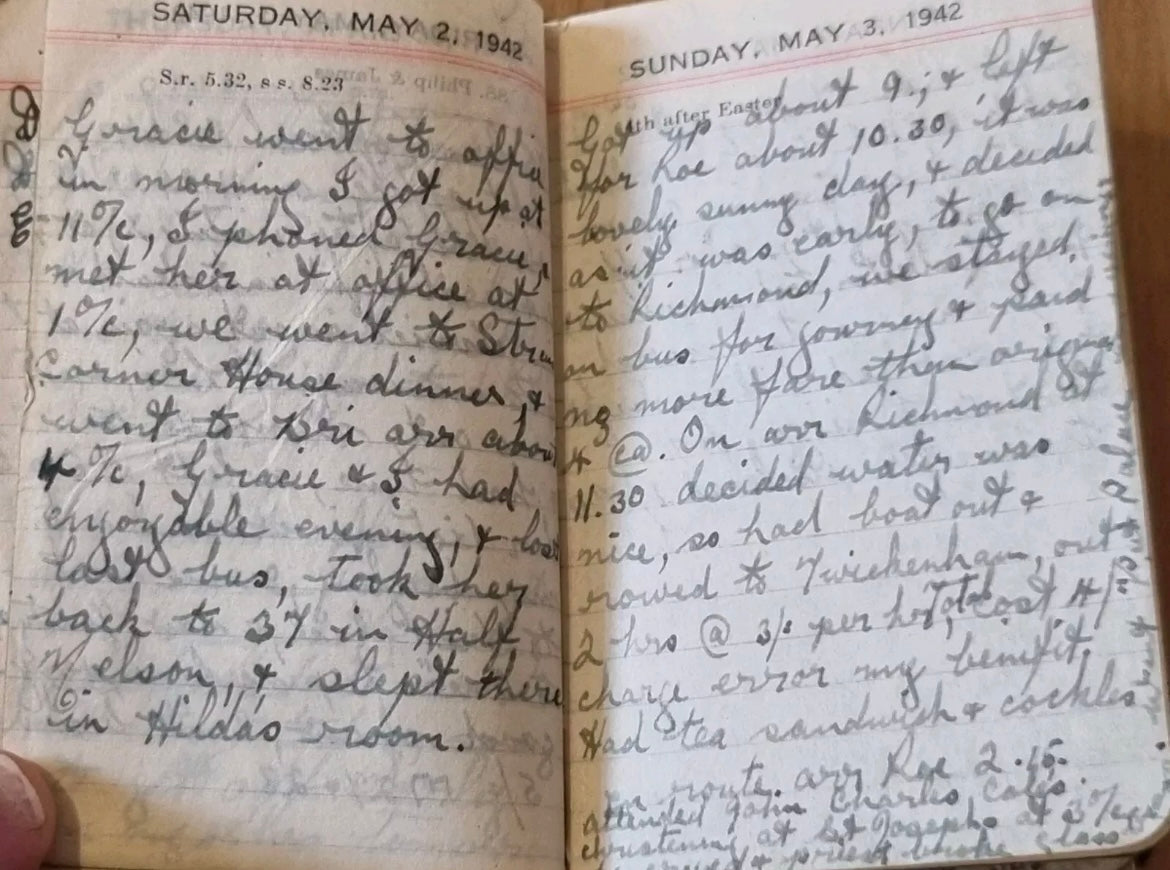 SATURDAY, MAY 2, 1942
S.r. 5.32, s s. 8.23
Gracie went to office
in morning I got up at
11 o/c, I phoned Gracie,
met her at office at
1 o/c, we went to
Corner House dinner, &
went to Bri arr about
4 o/c, Gracie & I had
enjoyable evening, & lost
last bus, took her
back to 37 in Half
Nelson, & slept there
in Hildas room.
SUNDAY, MAY 3, 1942
4th after Easter
Got up about 9.; & left
for Roe about 10.30, it was
lovely sunny day, & decided
as it was early, to go on
to Richmond, we stayed
on bus for journey & paid
no more fare then
4 @. On arr Richmond at
11.30 decided water was
nice, so had boat out &
rowed to Twickenham, out
2 hrs @ 3/- per hr, Total cost 4/-
charge error my benefit.
Had tea sandwich & cockles
en route. arr Roe 2.15.
attended John Charles
christening at St Josephs at 3 o/c
& priest broke glass